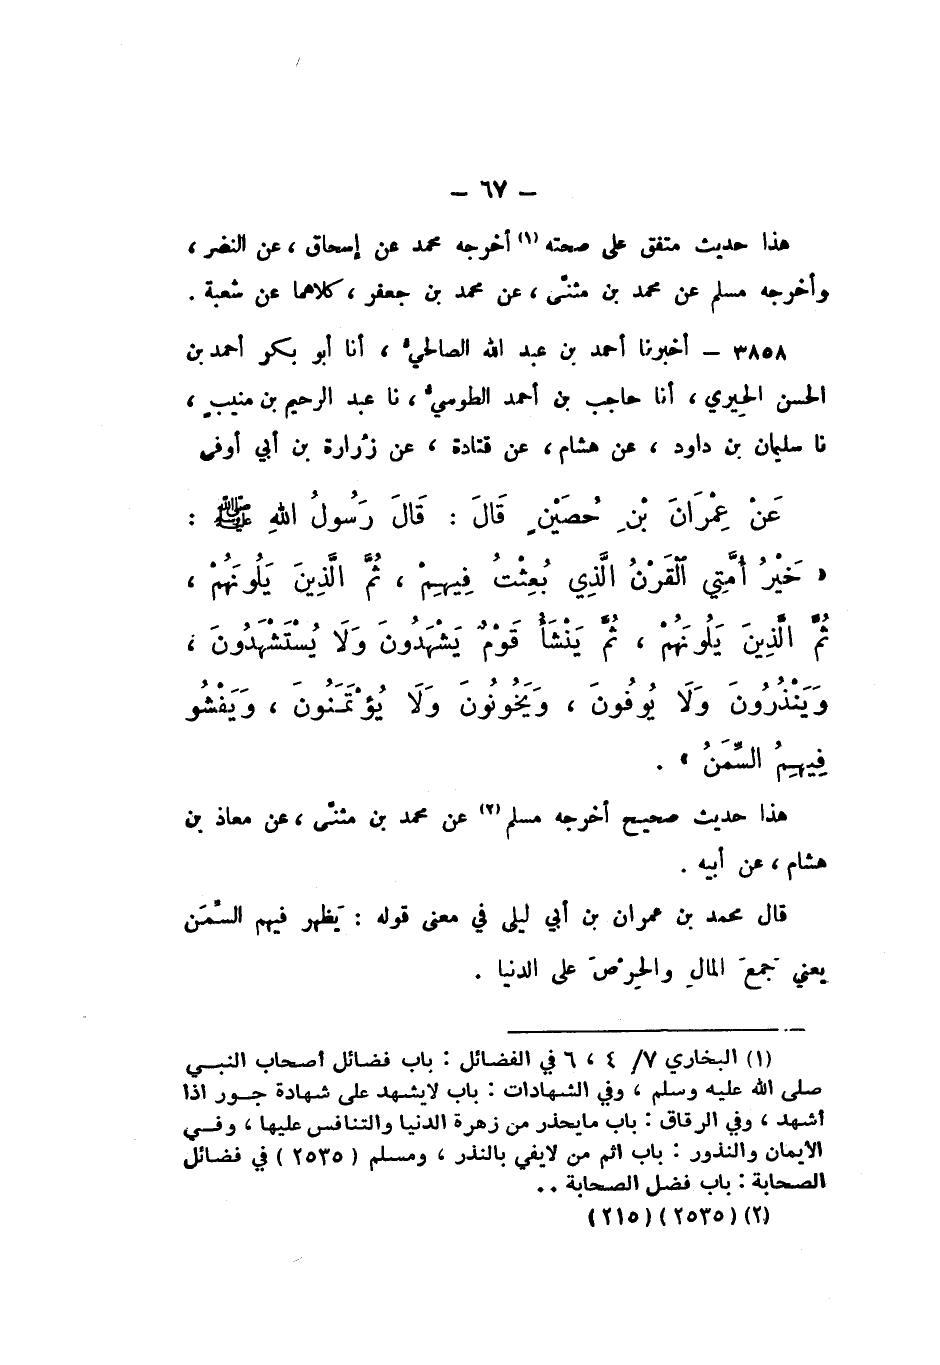 – ٦٧ –
هذا حديث متفق على صحته (١) أخرجه محمد عن إسحاق ، عن النضر ،
وأخرجه مسلم عن محمد بن مثنّى ، عن محمد بن جعفر ، كلاهما عن شعبة .
٣٨٥٨ – أخبرنا أحمد بن عبد الله الصالحيُّ ، أنا أبو بكر أحمد بن
الحسن الحِيري ، أنا حاجب بن أحمد الطوسيُّ ، نا عبد الرحيم بن منيبٍ ،
نا سليمان بن داود ، عن هشام ، عن قتادة ، عن زُرارة بن أبي أوفى
عَنْ عِمْرَانَ بْنِ حُصَيْنٍ قَالَ : قَالَ رَسُولُ اللهِ ﷺ :
« خَيْرُ أُمَّتِي ٱلْقَرْنُ الَّذِي بُعِثْتُ فِيهِمْ ، ثُمَّ الَّذِينَ يَلُونَهُمْ ،
ثُمَّ الَّذِينَ يَلُونَهُمْ ، ثُمَّ يَنْشَأُ قَوْمٌ يَشْهَدُونَ وَلَا يُسْتَشْهَدُونَ ،
وَيَنْذُرُونَ وَلَا يُوفُونَ ، وَيَخُونُونَ وَلَا يُؤْتَمَنُونَ ، وَيَفْشُو
فِيهِمُ السِّمَنُ » .
هذا حديث صحيح أخرجه مسلم (٢) عن محمد بن مثنّى ، عن معاذ بن
هشام ، عن أبيه .
قال محمد بن عمران بن أبي ليلى في معنى قوله : يَظهر فيهم السِّمَن
يعني جمعَ المالِ والحِرْصَ على الدنيا .
(١) البخاري ٧/ ٤ ، ٦ في الفضائل : باب فضائل أصحاب النبي
صلى الله عليه وسلم ، وفي الشهادات : باب لايشهد على شهادة جور اذا
أشهد ، وفي الرقاق : باب مايحذر من زهرة الدنيا والتنافس عليها ، وفي
الايمان والنذور : باب اثم من لايفي بالنذر ، ومسلم ( ٢٥٣٥ ) في فضائل
الصحابة : باب فضل الصحابة ..
(٢) (٢٥٣٥) (٢١٥)